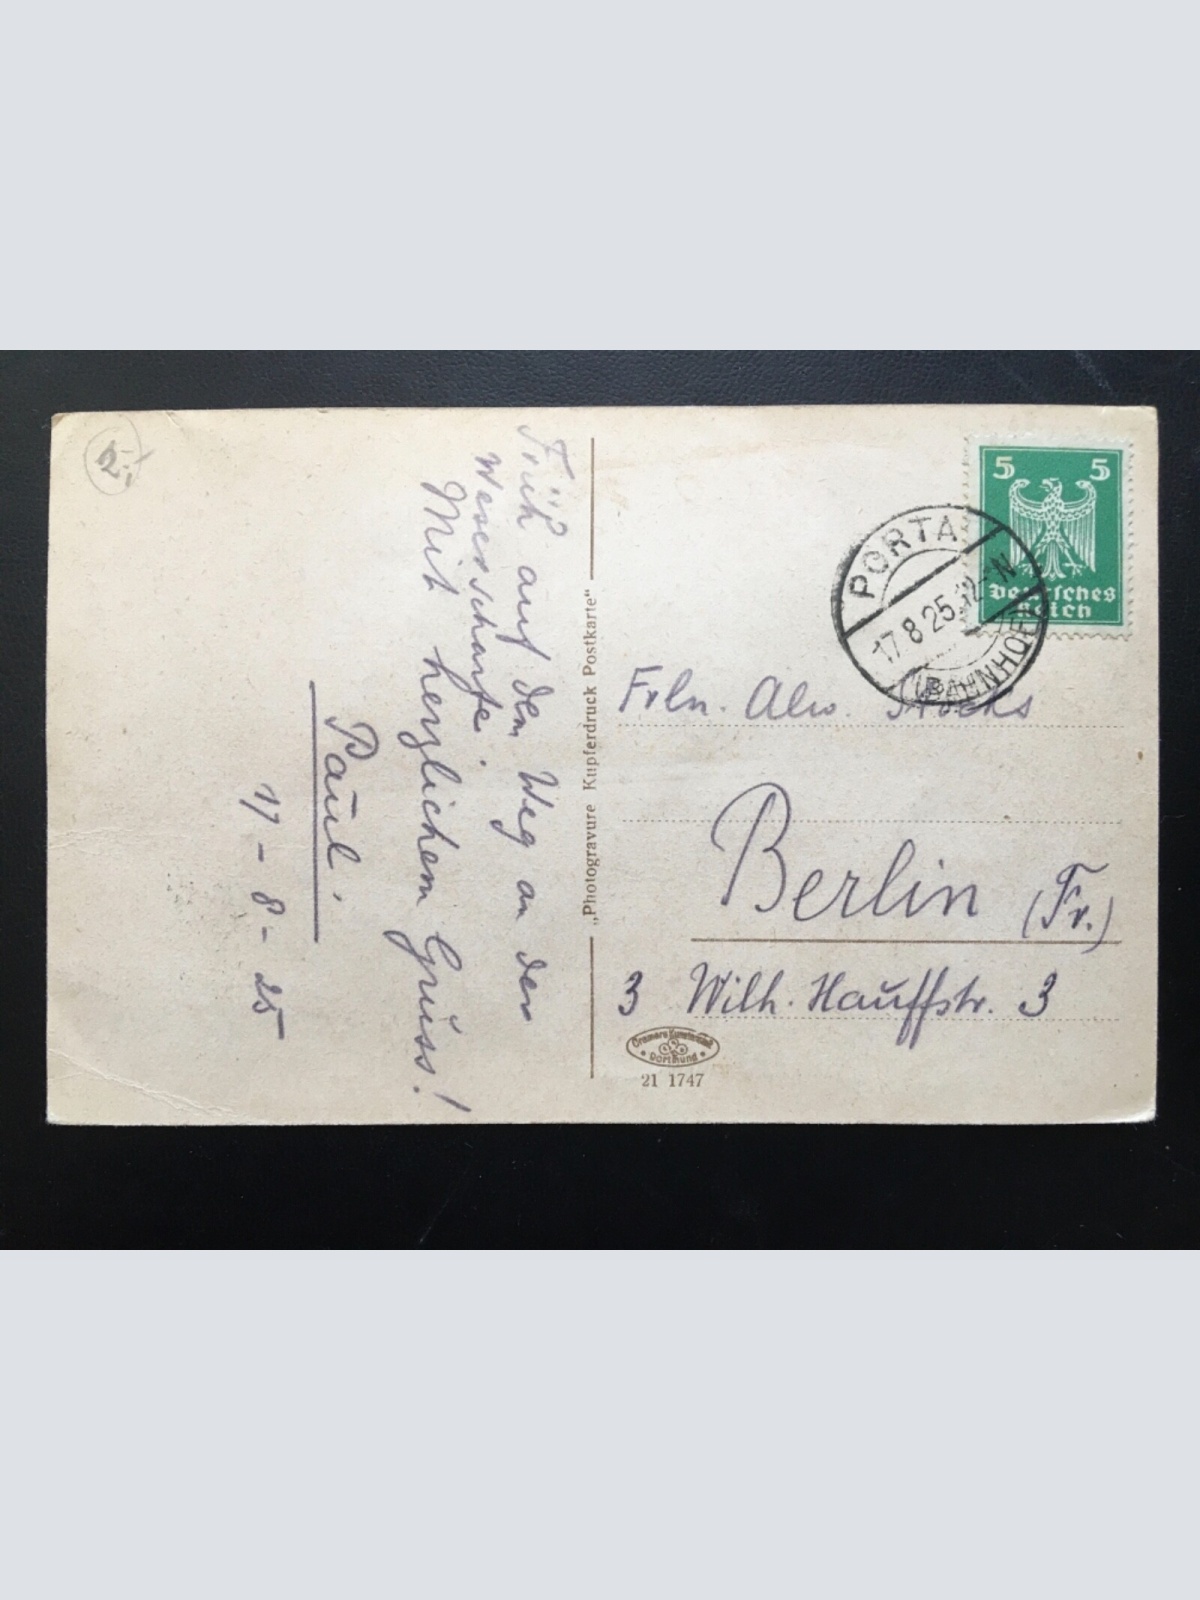 2.-
Früh auf dem Weg an der
Weserscharte.
Mit herzlichem Grüss!
Paul.
17-8-25
„Photogravure Kupferdruck Postkarte"
5 5
Deutsches
Reich
PORTA
17.8.25. 12-N
(BAHNHOF)
Frln. Alw.
Berlin (Fr.)
3 Wilh. Hauffstr. 3
Cramers Kunstanstalt
Dortmund
21 1747